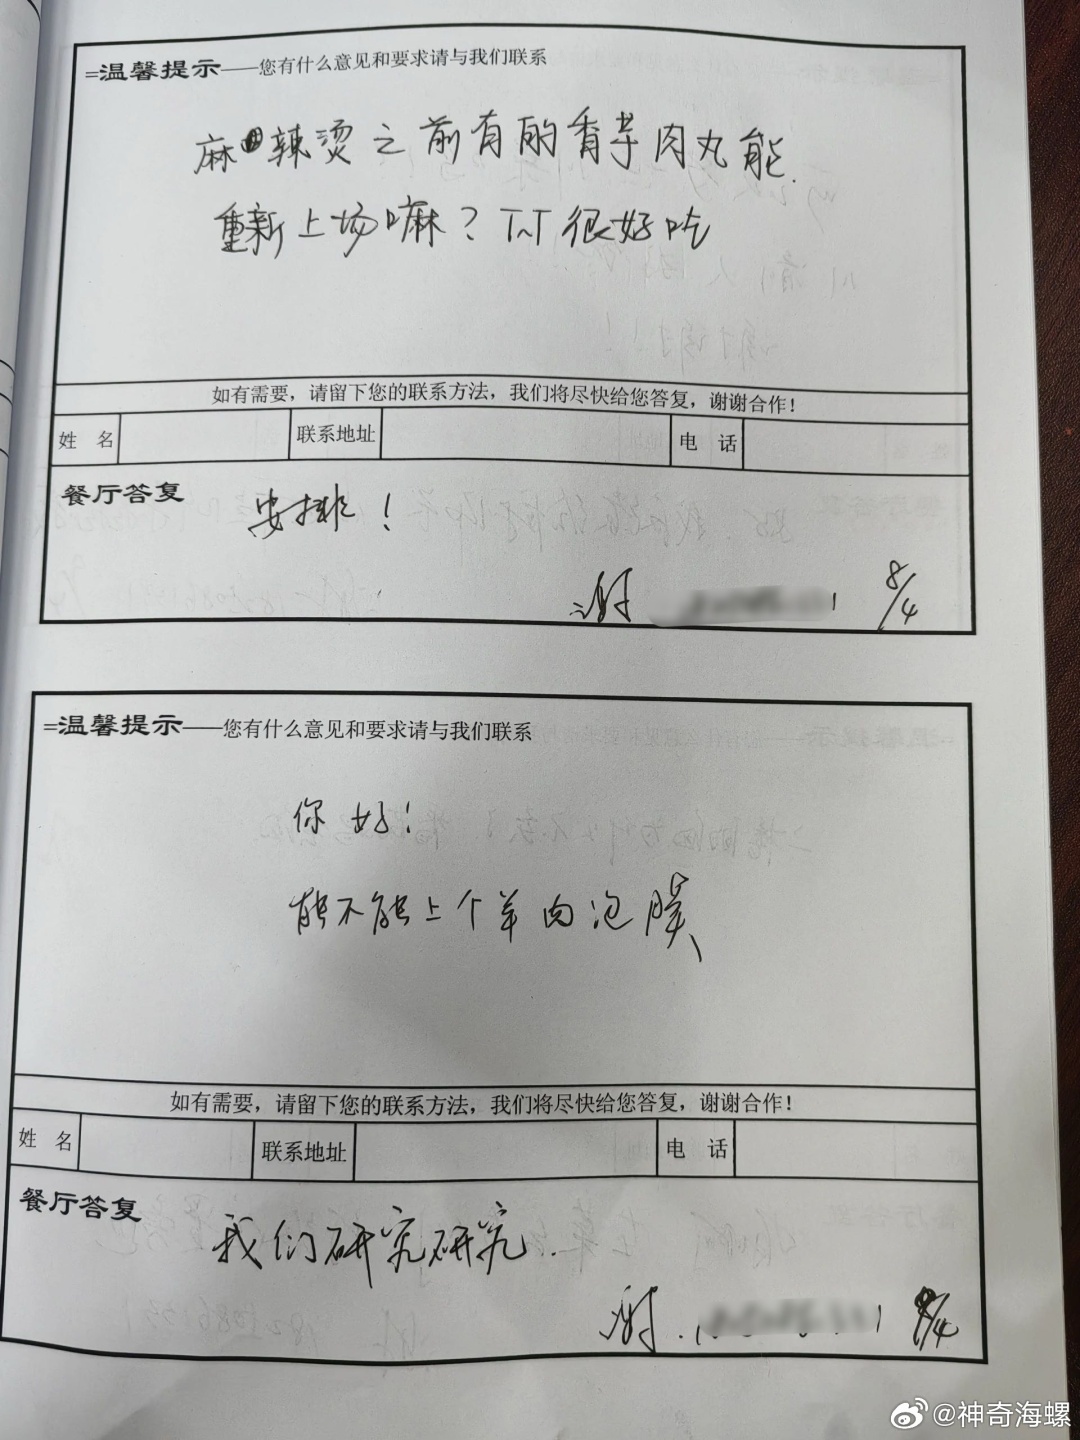 =温馨提示——您有什么意见和要求请与我们联系
麻辣烫之前有的香芋肉丸能
重新上场嘛？TnT很好吃
如有需要，请留下您的联系方法，我们将尽快给您答复，谢谢合作！
姓 名 联系地址 电 话
餐厅答复
安排！
谢 8/4
=温馨提示——您有什么意见和要求请与我们联系
你好！
能不能上个羊肉泡膜
如有需要，请留下您的联系方法，我们将尽快给您答复，谢谢合作！
姓 名 联系地址 电 话
餐厅答复
我们研究研究.
谢 8/4
@神奇海螺